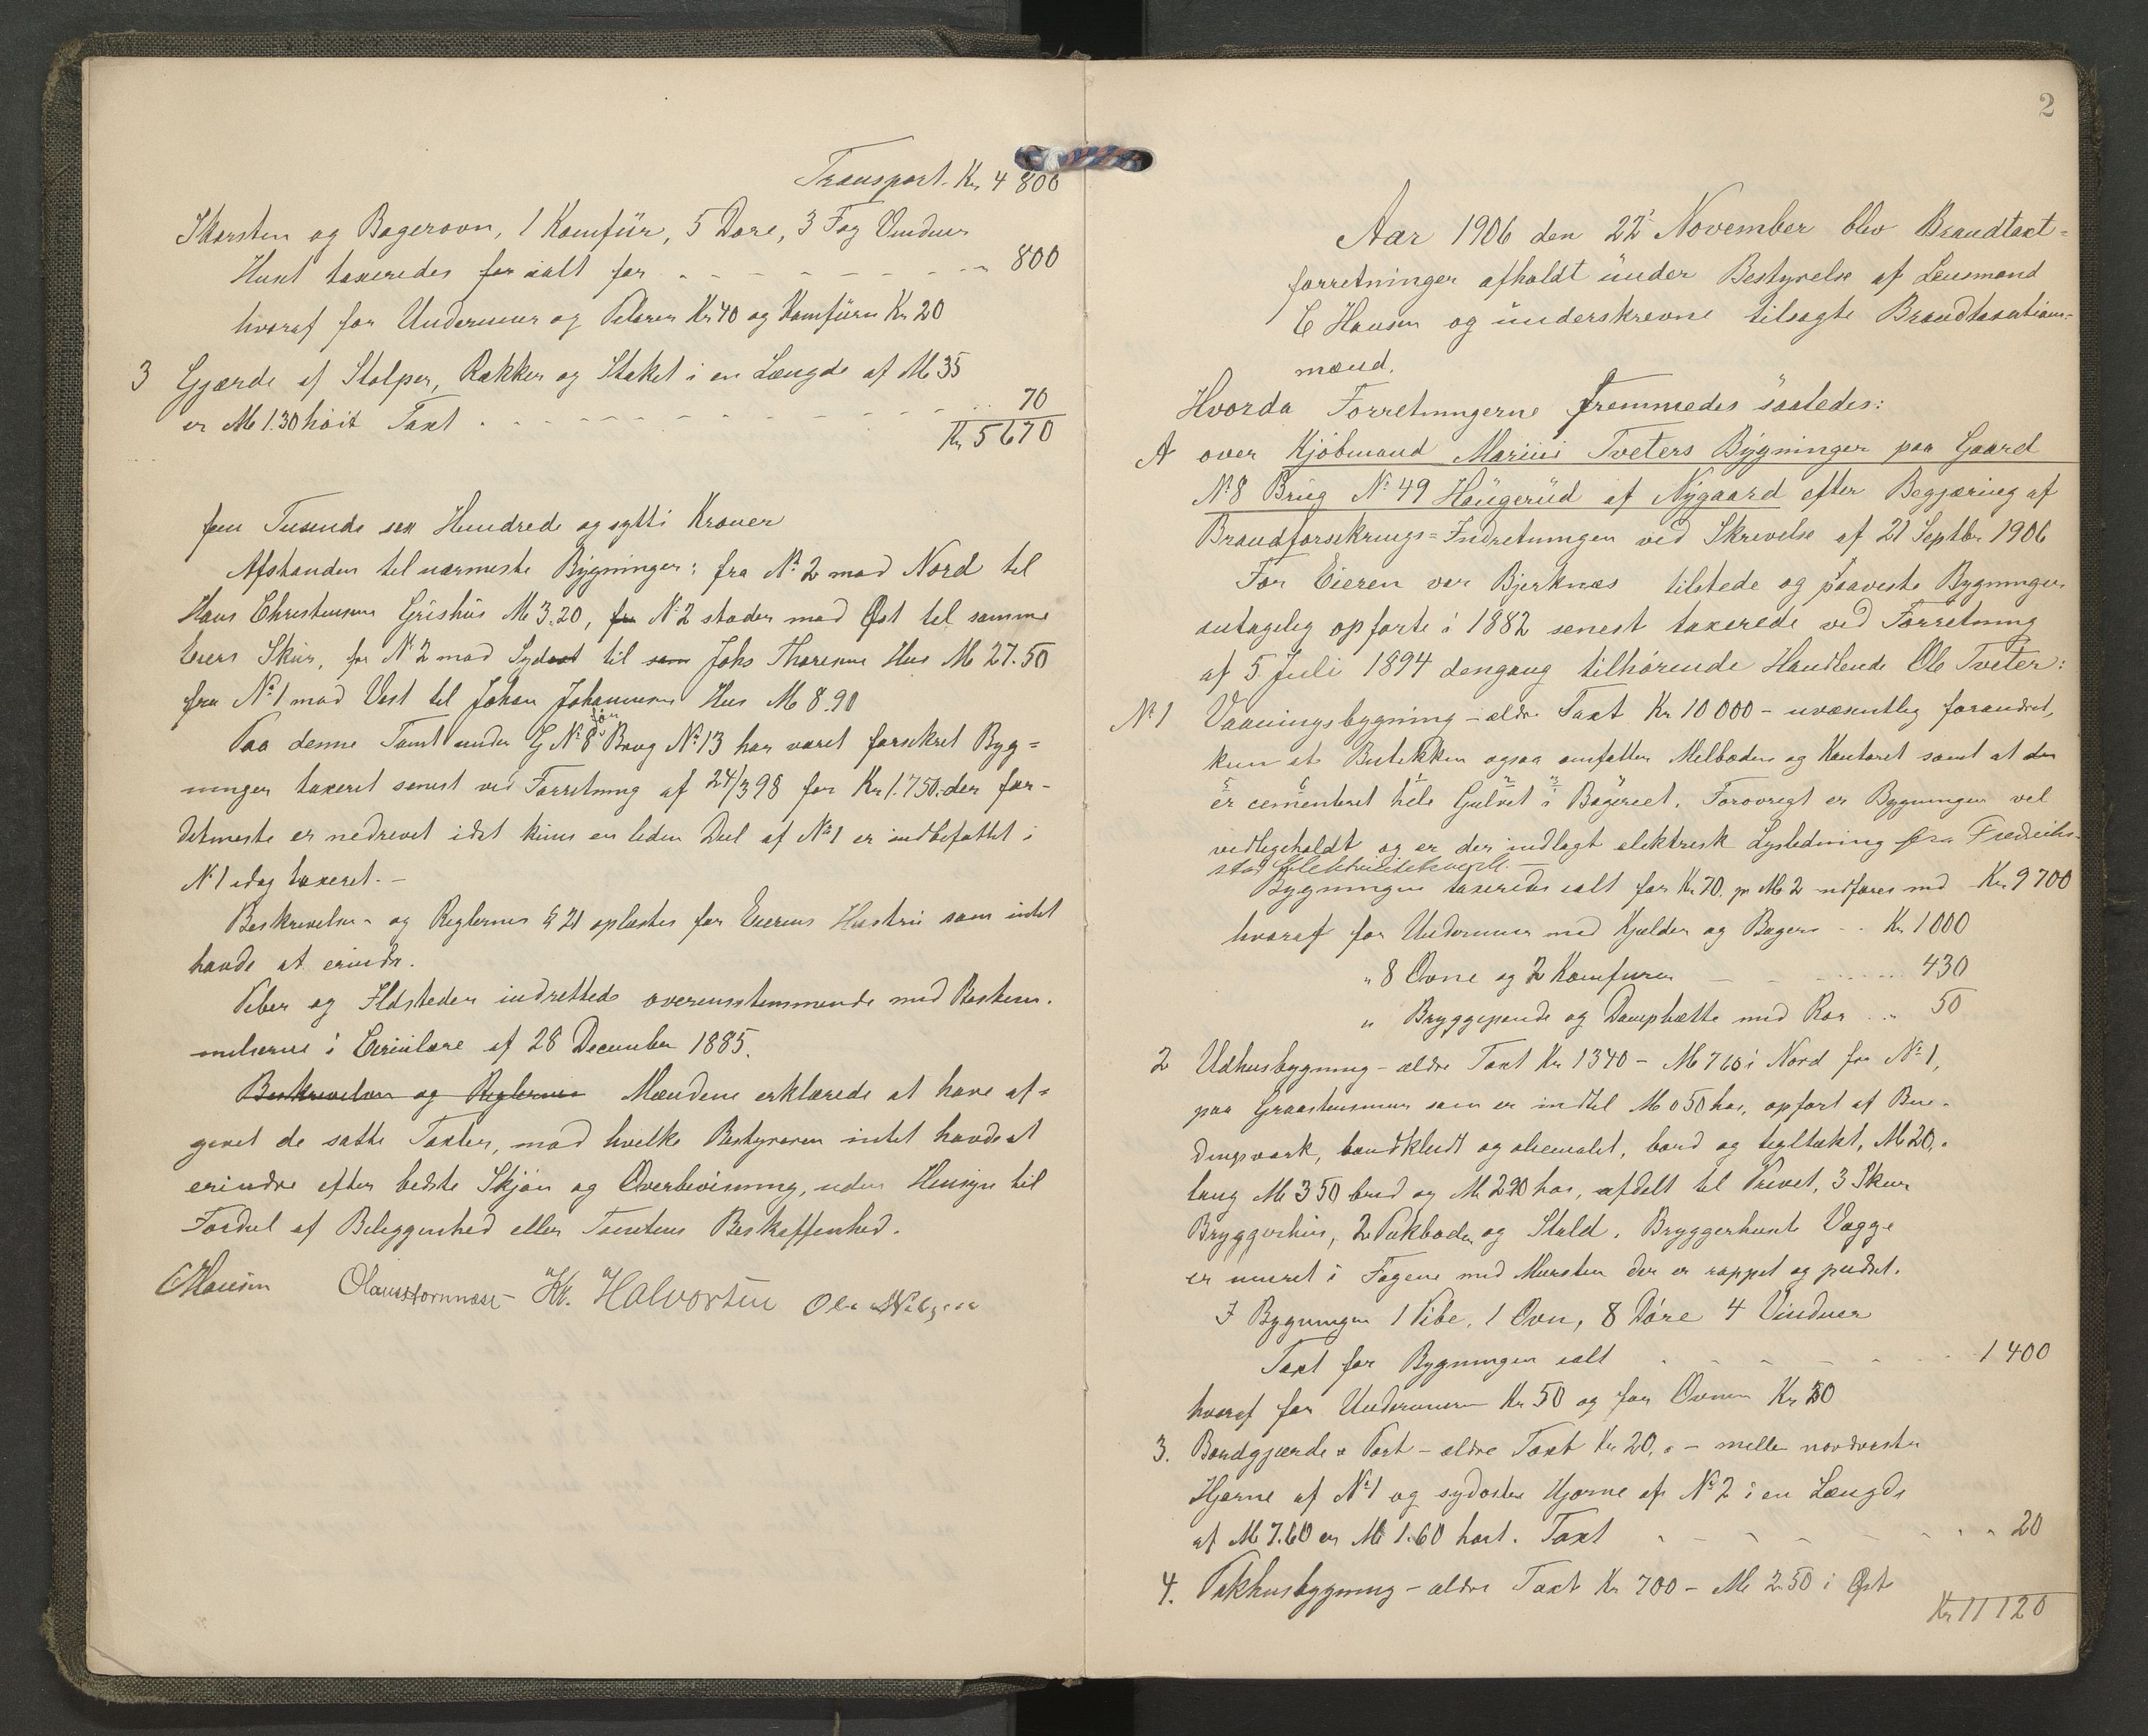 Transport. Kr 4 800
Skorsten og Bagerovn, 1 Komfür, 5 Døre, 3 Fag Vinduer
Huset taxeredes for ialt for 800
hvoraf for Undermur og Pelarer Kr 40 og Komfüren Kr 20
3 Gjærde af Stolper, Rækker og Staket i en Længde af M 35
er M 1.30 høit Taxt 70
Kr 5670
fem Tusende sex Hundrede og sytti Kroner
Afstanden til nærmeste Bygninger: fra No 2 mod Nord til
Hans Christensens Grishüs M 3.20, fra No 2 mod Øst til samme
Eiers Skür, fra No 2 mod Syd til Johs Thoresens Hus M 27.50
fra No 1 mod Vest til Johan Johannesens Hus M 8.90
Paa denne Tomt under G No 8 Brug No 13 har været forsikret Byg=
ninger taxeret senest ved Forretning af 24/3 98 for Kr 1.750. der for-
detmeste er nedrevet idet kuns en liden Del af No 1 er indbefattet i
No 1 idag taxeret. –
Beskrivelsen og Reglernes § 21 oplæstes for Eierens Hustrü som intet
havde at erindre.
Piber og Ildsteder indrettede overensstemmende med Bestem-
melserne i Cirkülære af 28 December 1885.
Beskrivelsen og Reglernes Mændene erklærede at have af=
givet de satte Taxter, mod hvilke Bestyreren intet havde at
erindre efter bedste Skjøn og Overbevisning, uden Hensyn til
Fordel af Beliggenhed eller Tomtens Beskaffenhed.
C Hansen Olaus Kr. Halvorsen Ole Nilsen
2
Aar 1906 den 22' November blev Brandtaxt=
forretninger afholdt ünder Bestyrelse af Lensmand
C Hansen og ünderskrevne tilsagte Brandtaxations=
mænd.
Hvorda Forretningerne fremmedes saaledes:
A over Kjøbmand Mariüs Tveters Bygninger paa Gaard
No 8 Brüg No 49 Haügerüd af Nygaard efter Begjæring af
Brandforsikrings=Indretningen ved Skrivelse af 21 Septbr 1906
For Eieren var Bjerknæs tilstede og paaviste Bygningen
antagelig opførte i 1882 senest taxerede ved Forretning
af 5 Juli 1894 dengang tilhørende Handlende Ole Tveter:
No 1 Vaaningsbygning – ældre Taxt Kr 10 000 – uvæsentlig forandret,
kun at Butikken ogsaa omfatter Melboden og Kontoret samt at der
er cementeret hele Gulvet i Bageriet. Forøvrigt er Bygningen vel
vedligeholdt og er der indlagt elektrisk Lysledning fra Fredriks-
stad Elektricitetsverk. –
Bygningen taxeredes ialt for Kr 70. pr M 2 udføres med Kr 9700
hvoraf for Undermur med Kjelder og Bageri Kr 1000
" 8 Ovne og 2 Komfurer 430
" Bryggepande og Damphætte med Rør 50
2 Udhusbygning – ældre Taxt Kr 1340 – M 7 60 i Nord fra No 1,
paa Graastensmur som er indtil M 0 50 høi, opført af Bin-
dingsværk, bordklædt og oliemalet, bord og tegltækt, M 20,.
lang M 3 50 bred og M 2 90 høi, afdelt til Privet, 3 Skur
Bryggerhüs, 2 Pakboder og Stald. Bryggerhusets Vægge
er muret i Fagene med Mursten der er rappet og pudset.
I Bygningen 1 Pibe, 1 Ovn, 8 Døre 4 Vinduer
Taxt for Bygningen ialt 1400
hvoraf for Undermuren Kr 50 og for Ovnen Kr 30
3. Bordgjærde & Port – ældre Taxt Kr 20,. – mellem nordvestre
Hjørne af No 1 og sydøstre Hjørne af No 2 i en Længde
af M 7.60 er M 1.60 høit. Taxt 20
4. Pakhusbygning – ældre Taxt Kr 700 – M 2.50 i Øst
Kr 11120